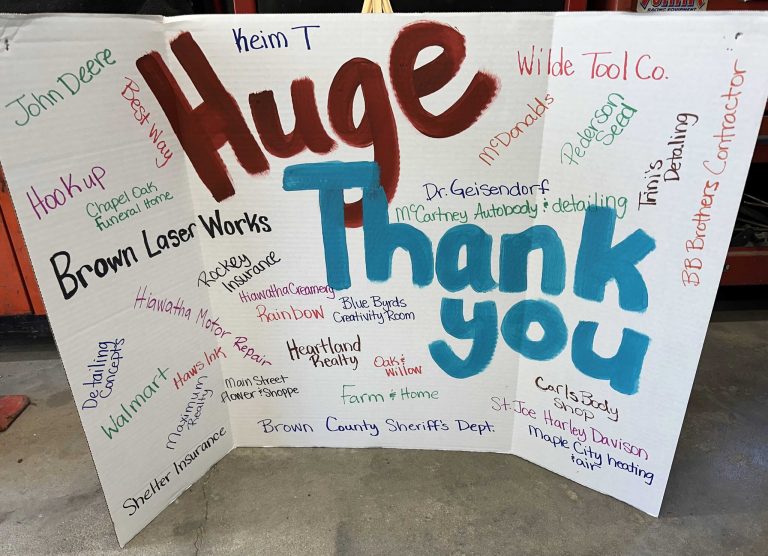 John Deere
Best Way
Hookup
Chapel Oak
Funeral Home
Brown Laser Works
Hiawatha Motor Repair
Detailing
Concepts
Walmart
Haws Ink
Maximum
Realty
Shelter Insurance
Keim T
Huge
Thank
you
Rockey
Insurance
Hiawatha Creamery
Rainbow
Blue Byrds
Creativity Room
Heartland
Realty
Oak &
Willow
Main Street
Flower & Shoppe
Farm & Home
Brown County Sheriff's Dept.
Dr. Geisendorf
McCartney Autobody & detailing
McDonalds
Wilde Tool Co.
Pederson
Seed
Trini's
Detailing
BB Brothers Contractor
Carls Body
Shop
St. Joe Harley Davison
Maple City heating
& air
RACING EQUIPMENT